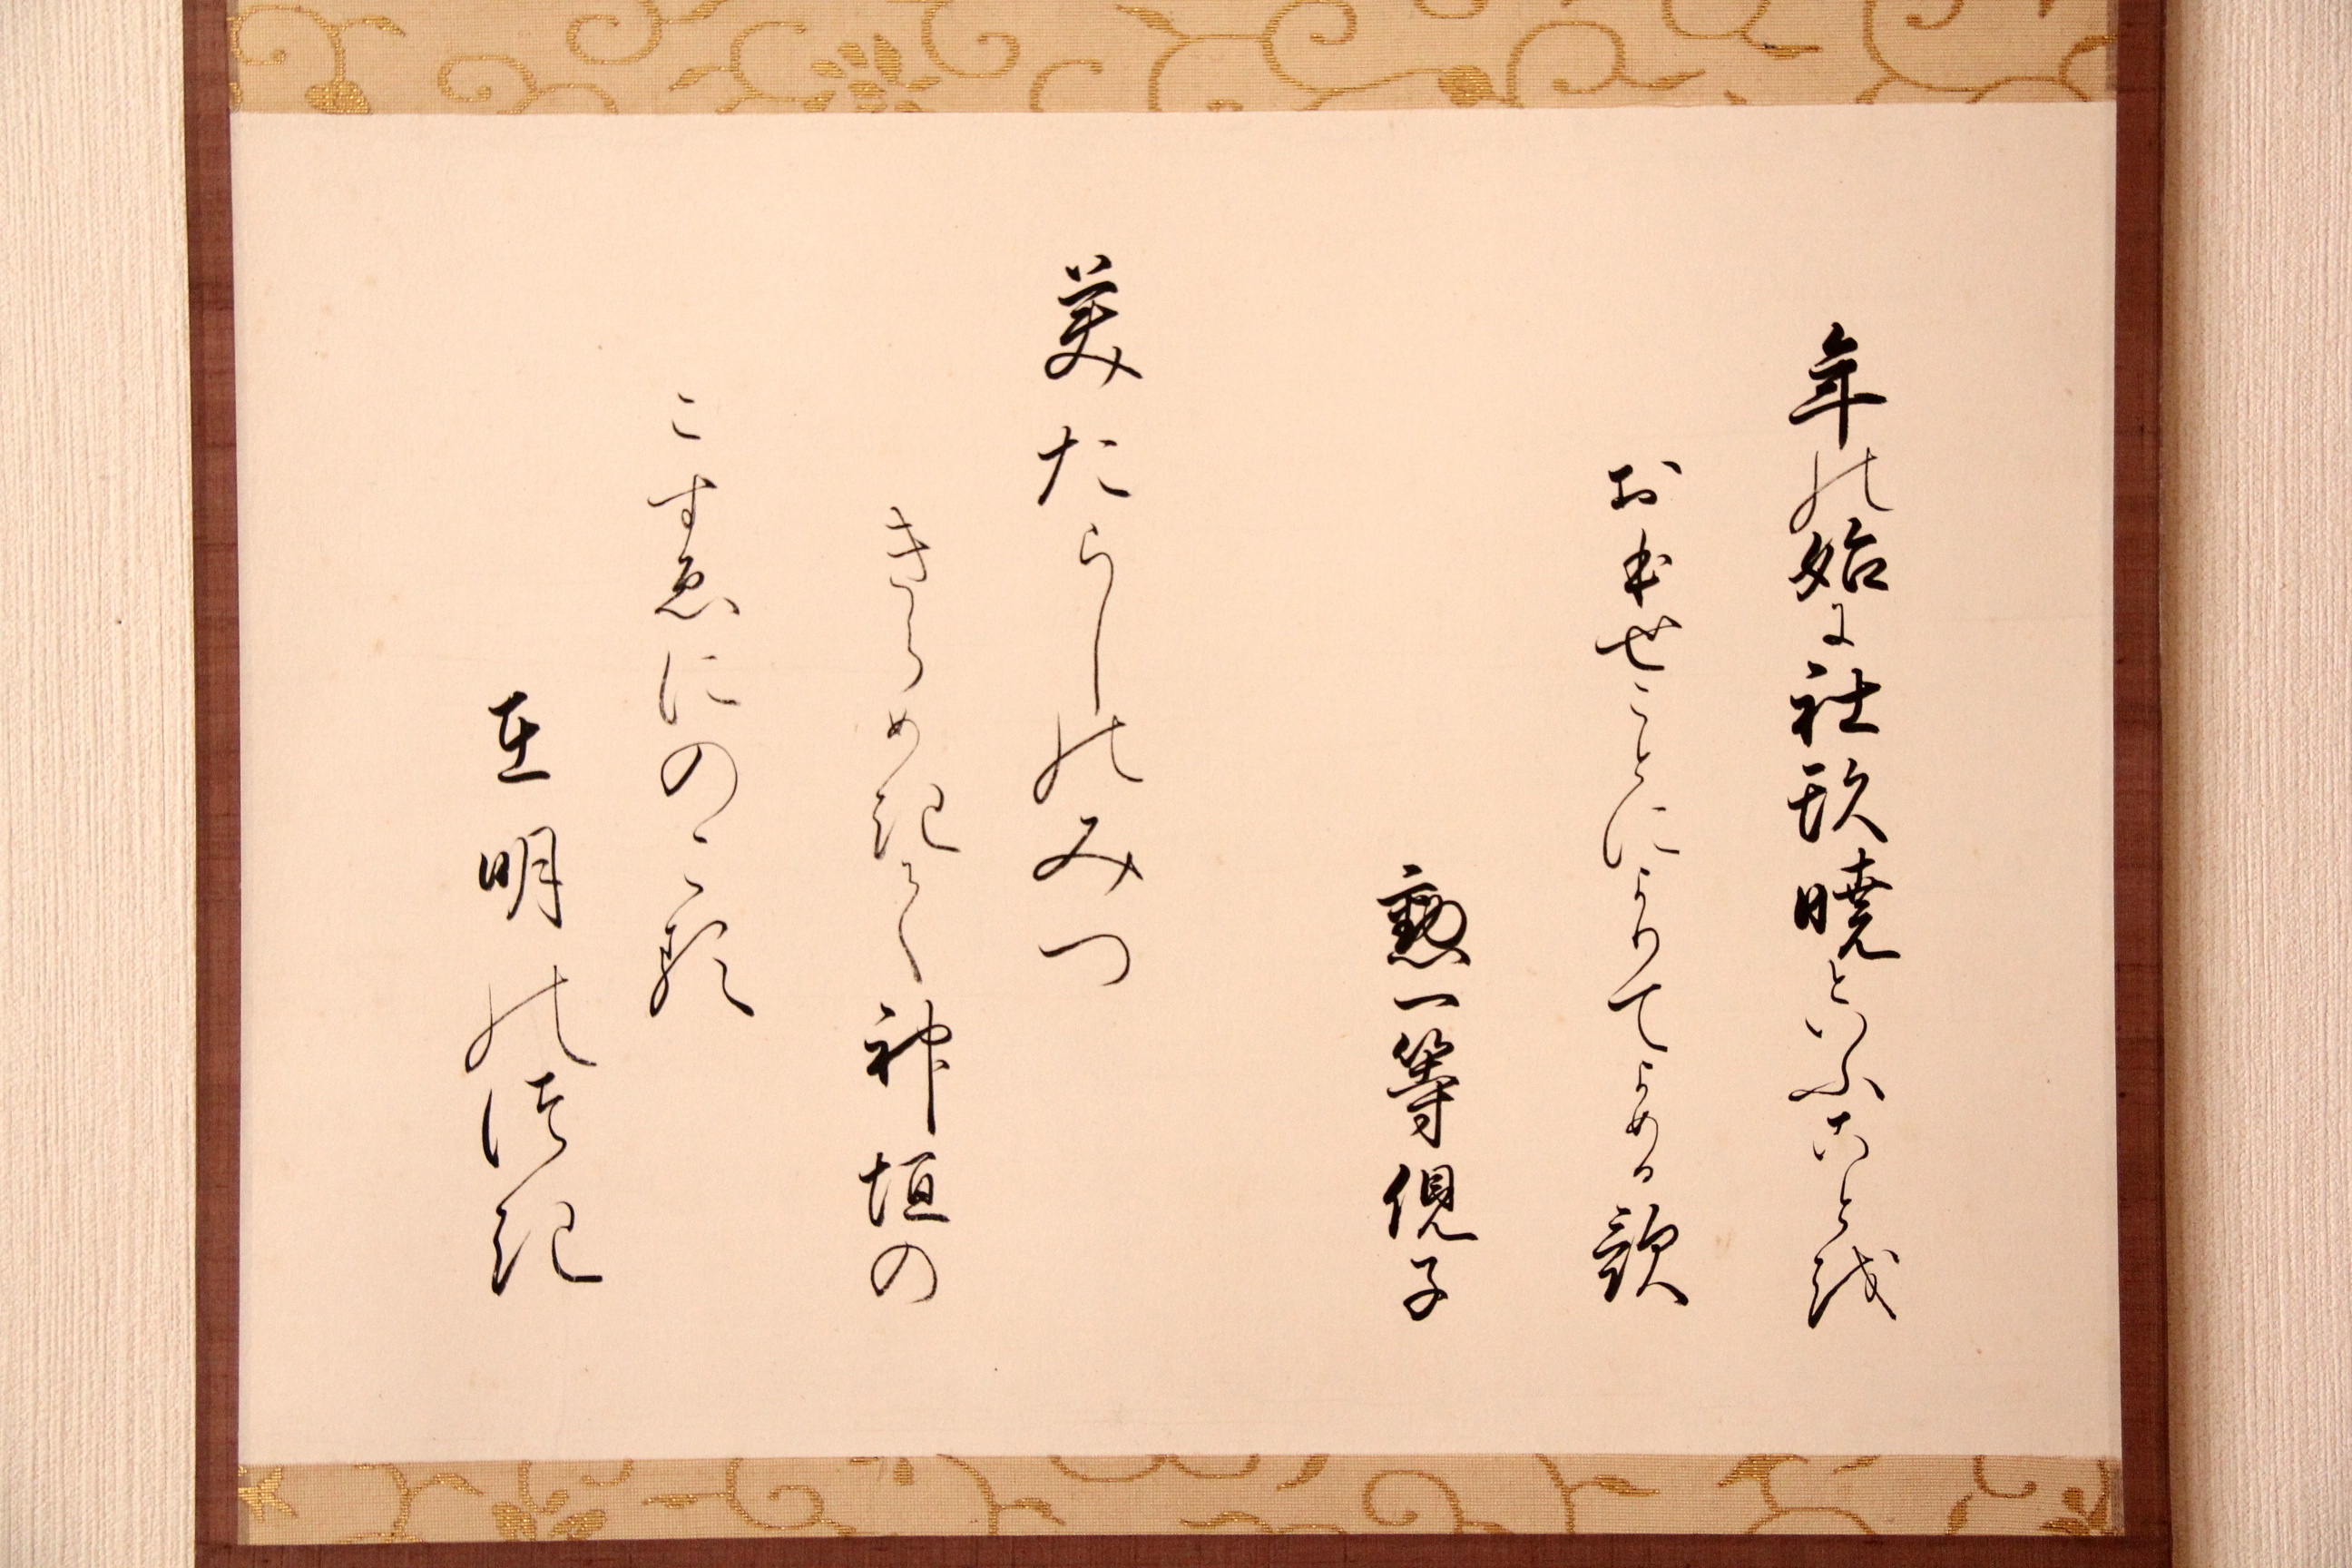 年の始に社頭暁といふことを
おほせことによりてよめる歌
勲一等俔子
美たらしのみつ
きらめきて神垣の
こすゑにのこる
在明のつき